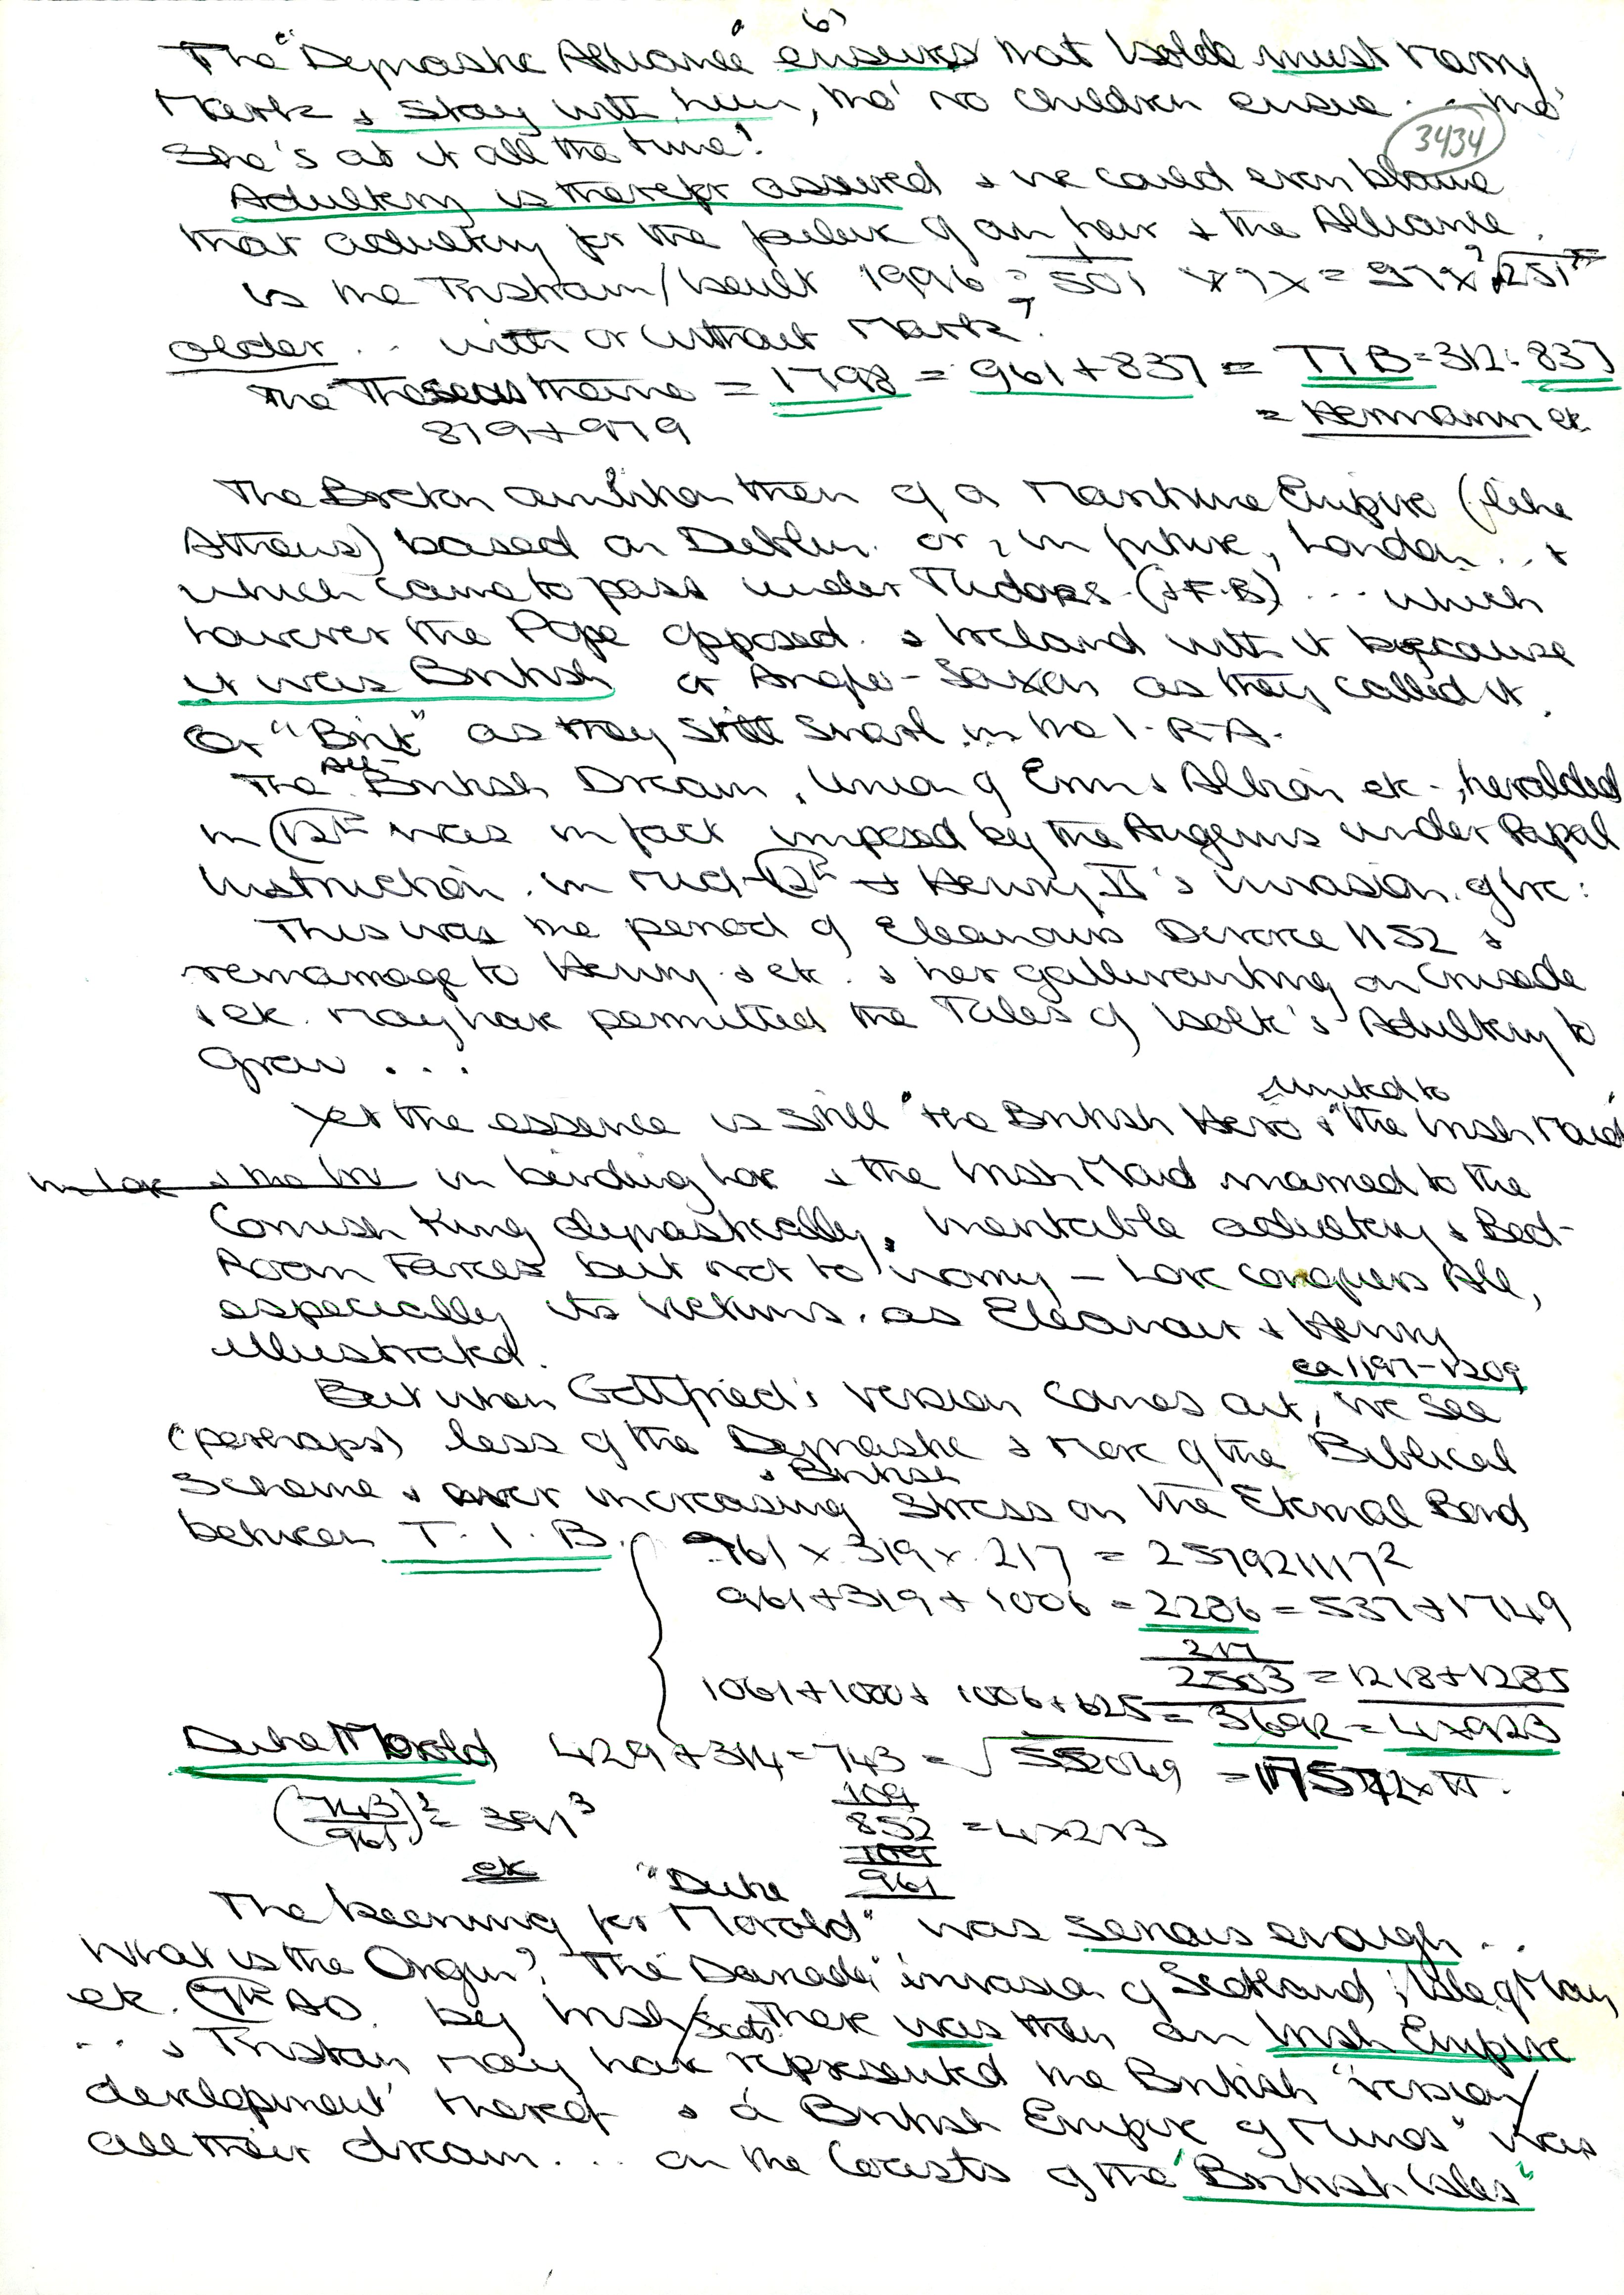 6)
The "Dynastic Alliance" ensures that Isolde must marry
Mark & stay with him, tho' no children ensue .. tho'
3434
She's at it all the time!
Adultery is therefor assured & we could even blame
that adultery for the failure of an heir & the Alliance.
Is the Tristram/Iseult 1996 = 501
older .. with or without Mark?
The Theseus theme = 1798 = 961+837 = TIB = 312 : 837
819+979 = Hermann etc
The Breton ambition then of a Maritime Empire (like
Athens) based on Dublin. or, in future, London .. &
which came to pass under Tudors (J.F.B) ... which
however the Pope opposed. & Ireland with it because
it was British or Anglo-Saxon as they called it.
Or "Brit" as they still snarl in the I.R.A.
The All-British Dream, Union of Erin & Albion etc-, heralded
in 12th was in fact imposed by the Angevins under Papal
Instruction. in mid-12th & Henry II's invasion of Ire:
This was the period of Eleanour's Divorce 1152 &
remarriage to Henry & etc. & her gallivanting on Crusade
& etc. may have permitted the Tales of Isolte's Adultery to
Grow ...
united to
Yet the essence is still "the British Hero & "the Irish Maid"
in binding love & the Irish Maid married to the
Cornish King dynastically. Inevitable adultery & Bed-
Room Farces but not to worry — Love conquers All,
especially its victims. as Eleanour & Henry
illustrated.
ca 1197-1209
But when Gottfried's version comes out, we see
(perhaps) less of the Dynastic & more of the Biblical
& British
Scheme & ever increasing stress on the Eternal Bond
between T.I.B. 961 x 319 x 217 = 257921117²
961+319+1006 = 2286 = 537+1749
217
2503 = 1218+1285
1061+1000+1006+625 = 3692 = 4x923
Duke Morold 429+314 = 743 = √552049 = 17572xπ.
(743/961)² = 391³
109
852 = 4x213
109
961
etc
"Duke
The keening for Morold" was serious enough ..
What is the Origin? The "Danada" invasion of Scotland, Isle of Man
etc. 9th AD. by Irish/Scots. There was then an Irish Empire
... & Tristan may have represented the British "version/
development" thereof & a British Empire of Minos" was
all their dream ... on the Coasts of the "British Isles"